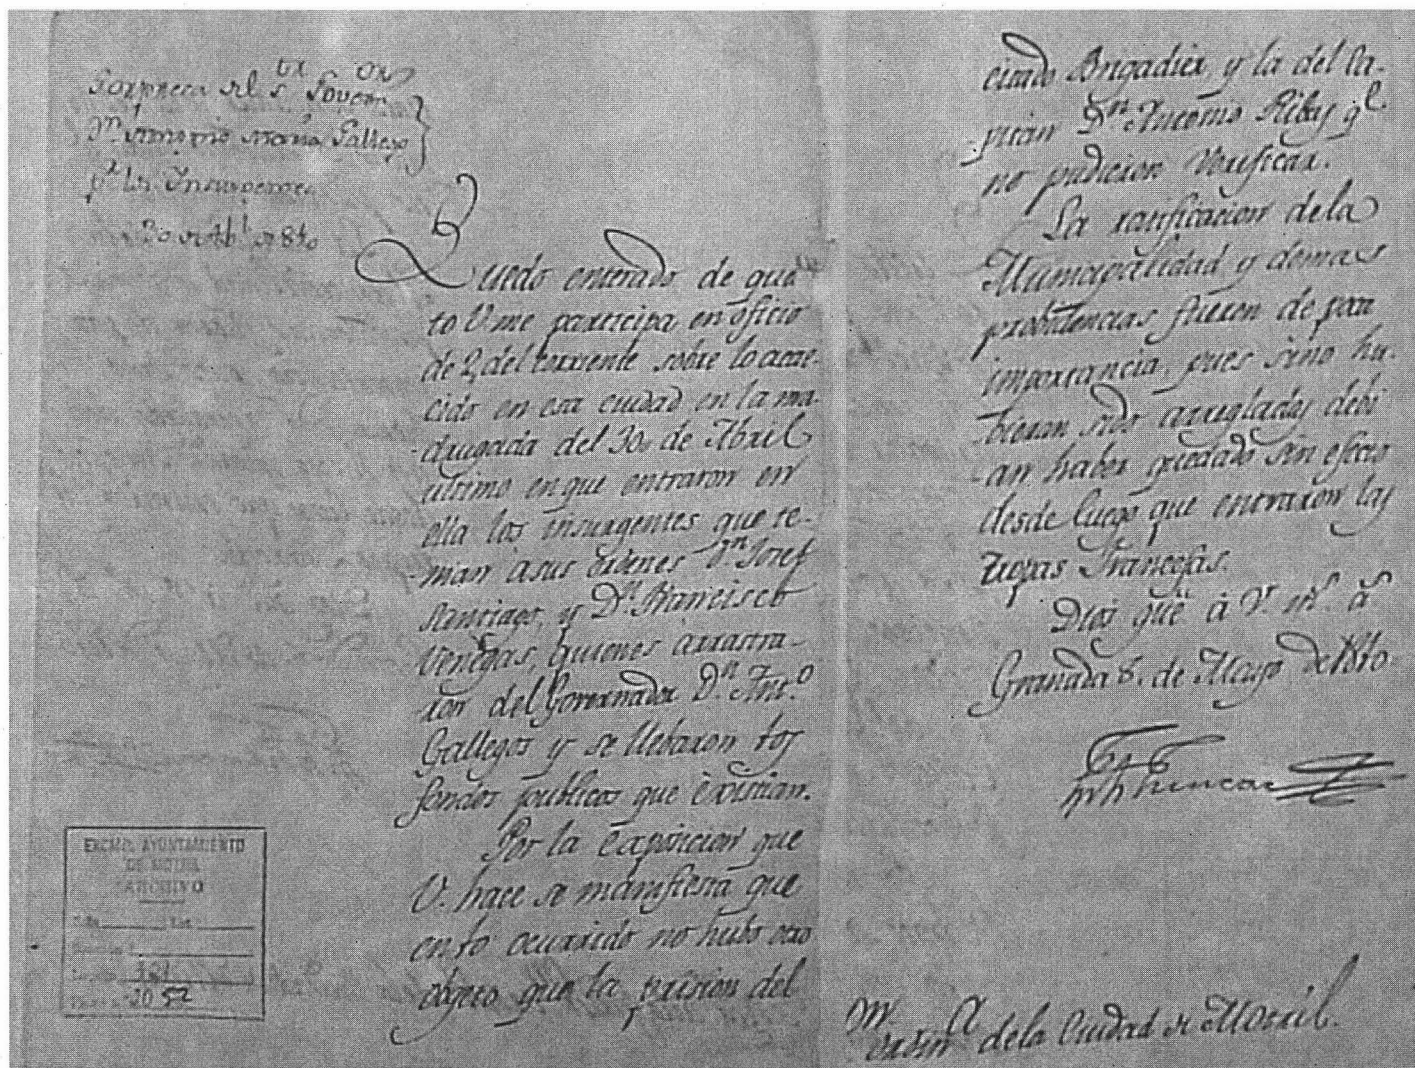 Sorpreca del Sr. Govor.
Dn Antonio Maria Gallego
pr. los Insurgentes
30 de Abl. de 810
Quedo enterado de quan
to V. me participa en oficio
de 2, del corriente sobre lo acae-
cido en esa ciudad en la ma-
drugada del 30, de Abril
ultimo en que entraron en
ella los insurgentes que te-
nian a sus ordenes Dn Josef
Santiago, y Dn Francisco
Venegas, quienes arrastra-
ron del Governador Dn Anto
Gallegos y se llebaron los
fondos publicos que existian.
Por la exposicion que
V. hace se manifiesta que
en lo ocurrido no hubo otro
objeto que la prision del
citado Brigadier, y la del Ca-
pitan Dn Antonio Ribas ql
no pudieron verificar.
La ratificacion de la
Municipalidad y demas
probidencias fueron de para
importancia, pues sino hu-
bieran sido arregladas debi
an haber quedado sin efecto
desde luego que entraron las
tropas Francesas.
Dios gue à V. ms. as
Granada 8. de Mayo de 1810
EXCMO. AYUNTAMIENTO
DE MOTRIL
ARCHIVO
101
2052
de la Ciudad de Motril.